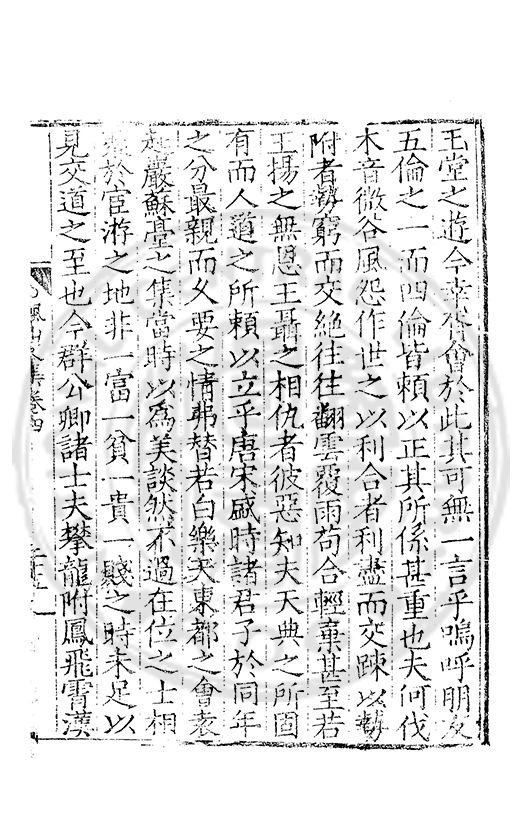 玉堂之遊今幸咨會於此其可無一言乎嗚呼朋友
五倫之一而四倫皆賴以正其所係甚重也夫何伐
木音微谷風怨作世之以利合者利盡而交踈以勢
附者勢窮而交絶往往翻雲覆雨苟合輕棄甚至若
王揚之無恩王聶之相仇者彼惡知夫天典之所固
有而人道之所賴以立乎唐宋盛時諸君子於同年
之分最親而久要之情弗替若白樂天東都之會袁
嚴蘇臺之集當時以爲美談然不過在位之士相
於宦游之地非一富一貧一貴一賤之時未足以
見交道之至也今群公卿諸士夫攀龍附鳳飛霄漢
鳳山文集卷四